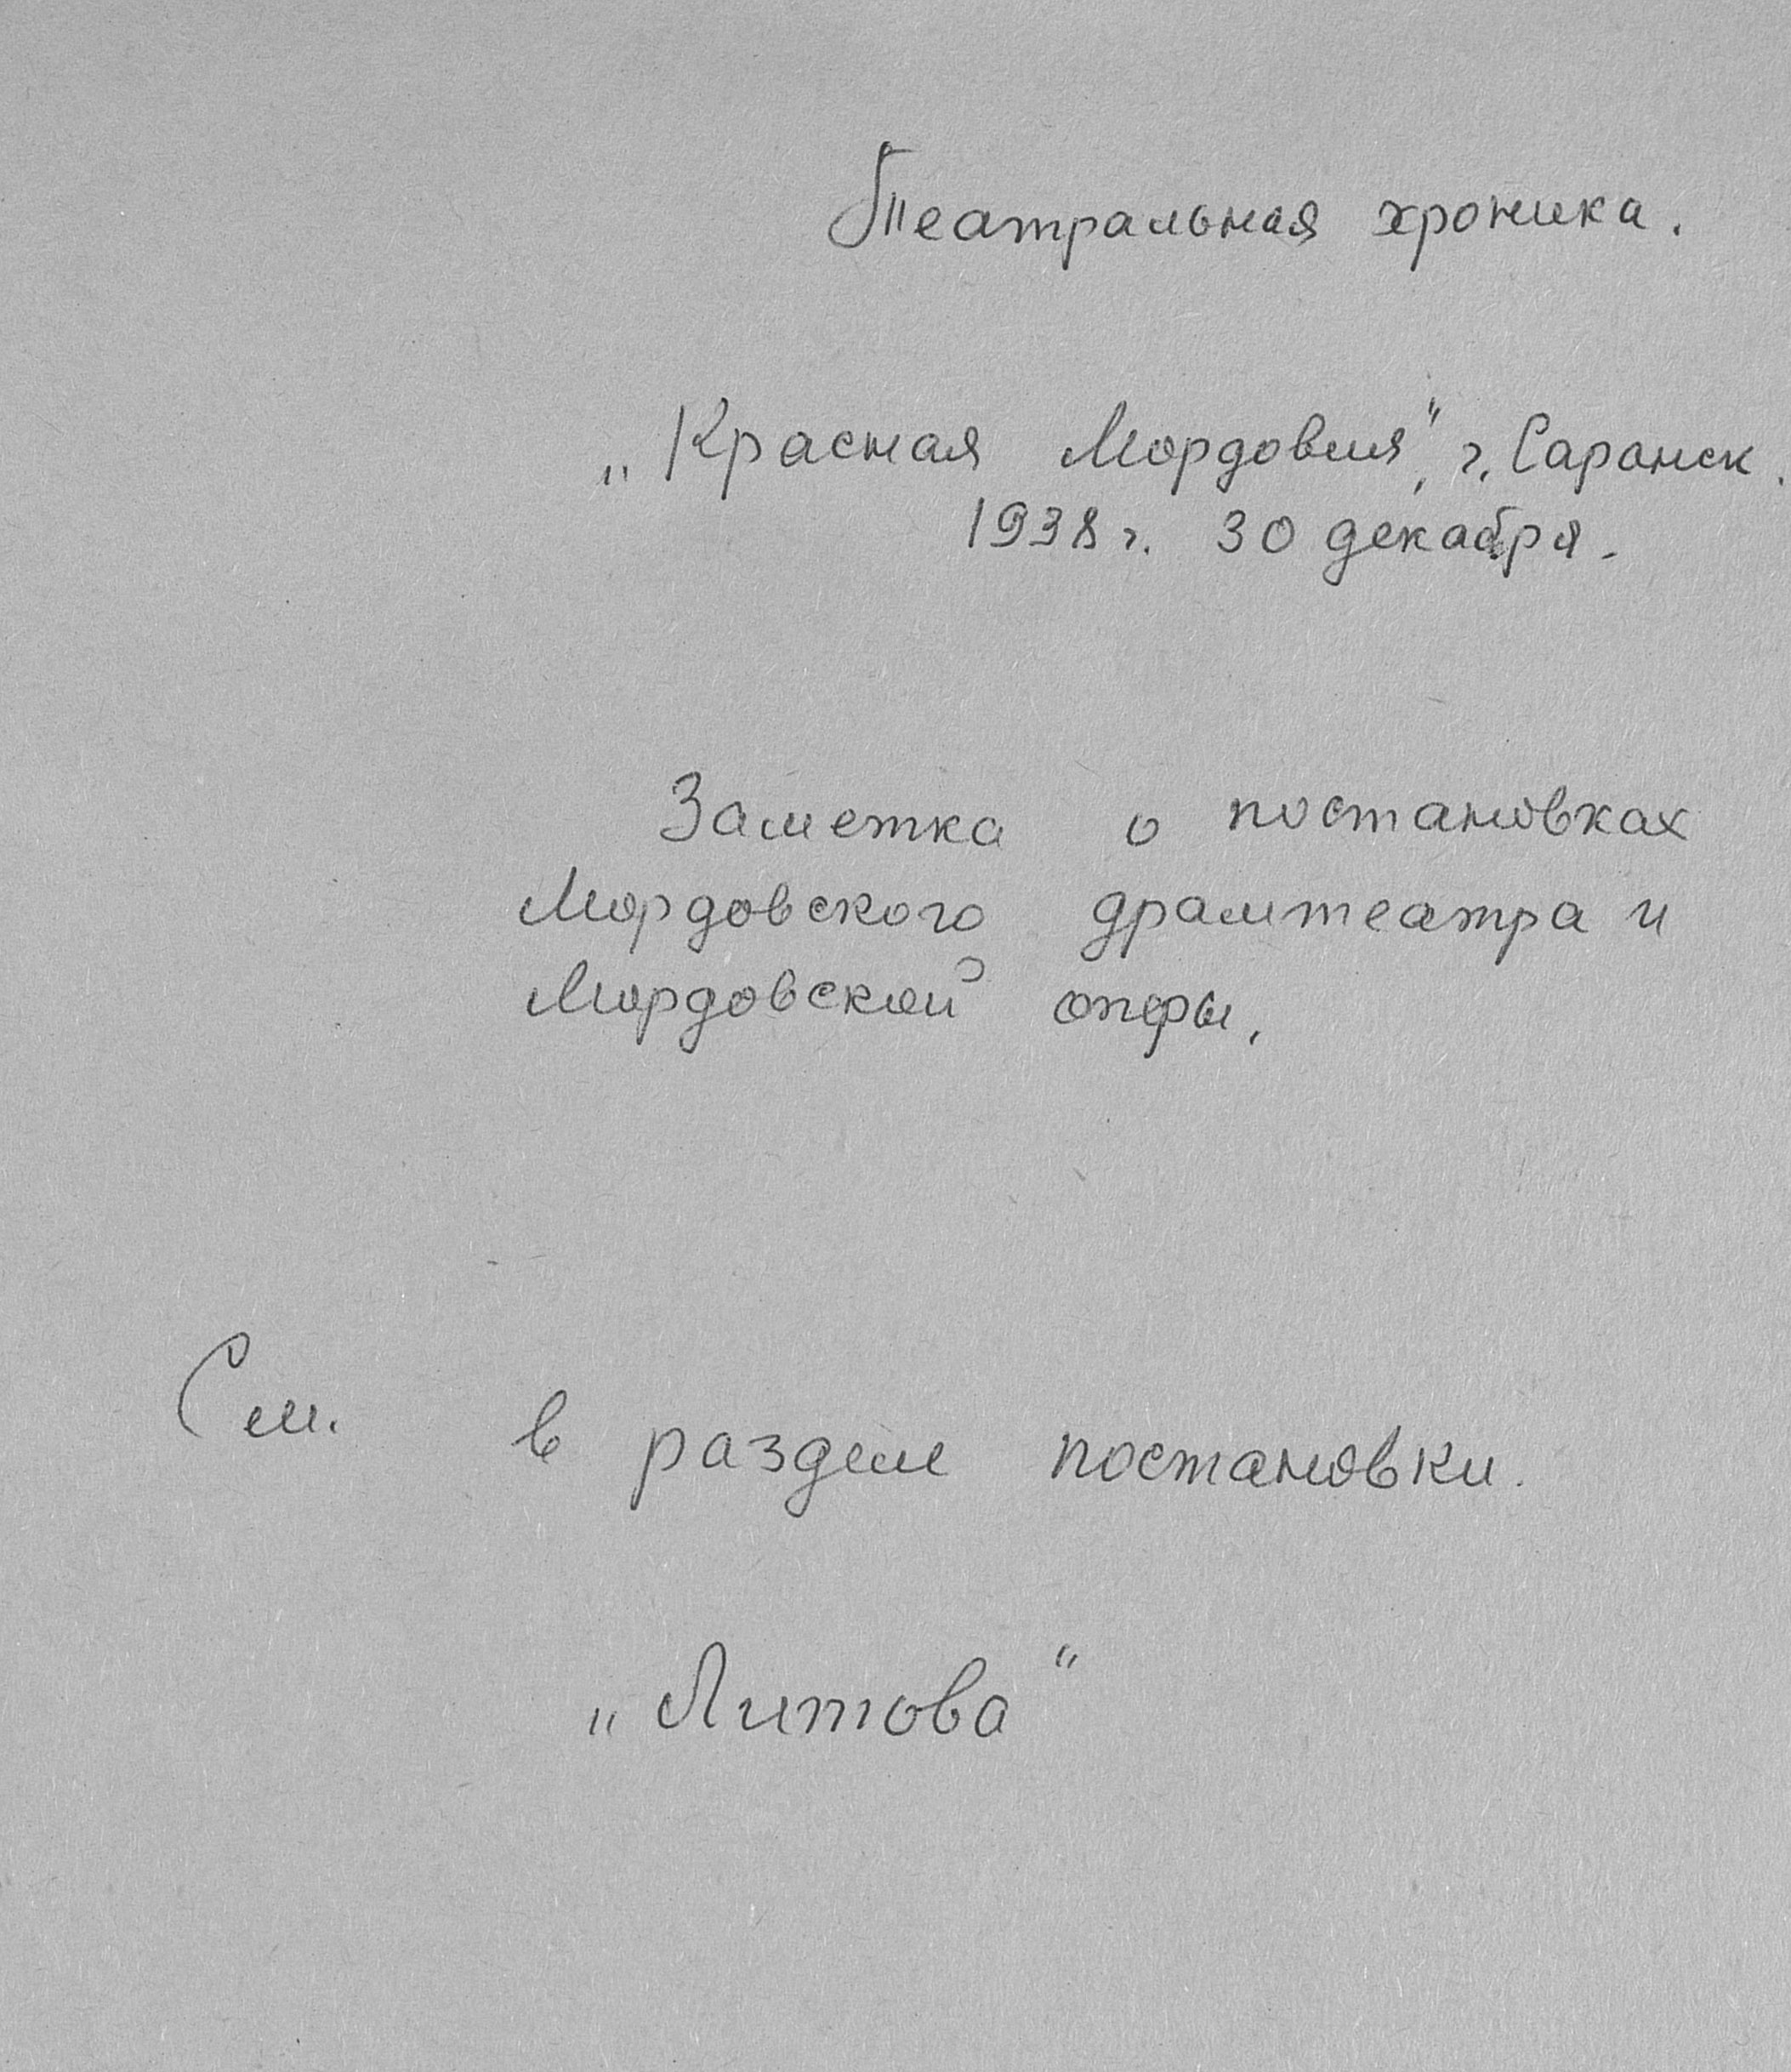 Театральная хроника.
„Красная Мордовия", г. Саранск.
1938 г. 30 декабря.
Заметка о постановках
Мордовского драмтеатра и
Мордовской оперы.
См. в разделе постановки.
„Литова"